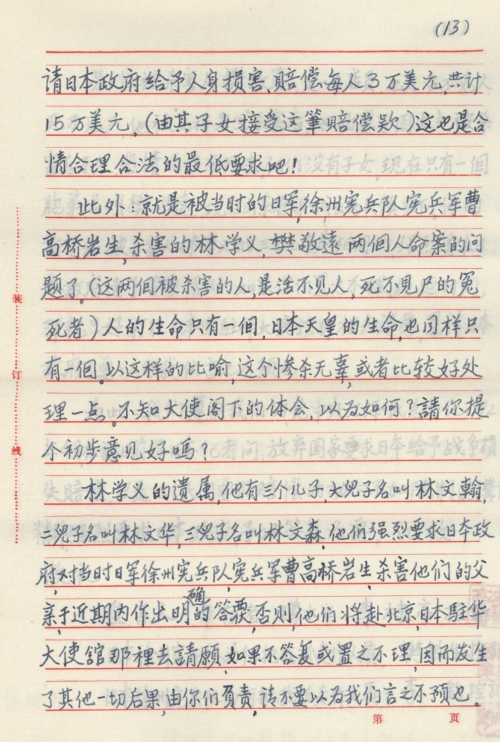 (13)
请日本政府给予人身损害、赔偿每人3万美元,共计
15万美元,(由其子女接受这筆赔偿欵)这也是合
情合理合法的最低要求吧!
此外:就是被当时的日军徐州宪兵队宪兵军曹
高桥岩生,杀害的林学义,樊敬遠两個人命案的问
题了。(这两個被杀害的人,是活不见人,死不见尸的冤
死者)人的生命只有一個,日本天皇的生命也同样只
有一個。以这样的比喻,这个惨杀无辜,或者比较好处
理一点。不知大使阁下的体会,以为如何?請你提
个初步意见好嗎?
林学义的遗属,他有三个儿子,大兒子名叫林文翰,
二兒子名叫林文华,三兒子名叫林文森,他们强烈要求日本政
府对当时日军徐州宪兵队宪兵军曹高桥岩生杀害他们的父
亲于近期内作出明确的答覆,否则,他们将赴北京日本駐华
大使舘那裡去請願,如果不答复或置之不理,因而发生
了其他一切后果,由你们負责,请不要以为我们言之不预也。
装
订
线
第 页